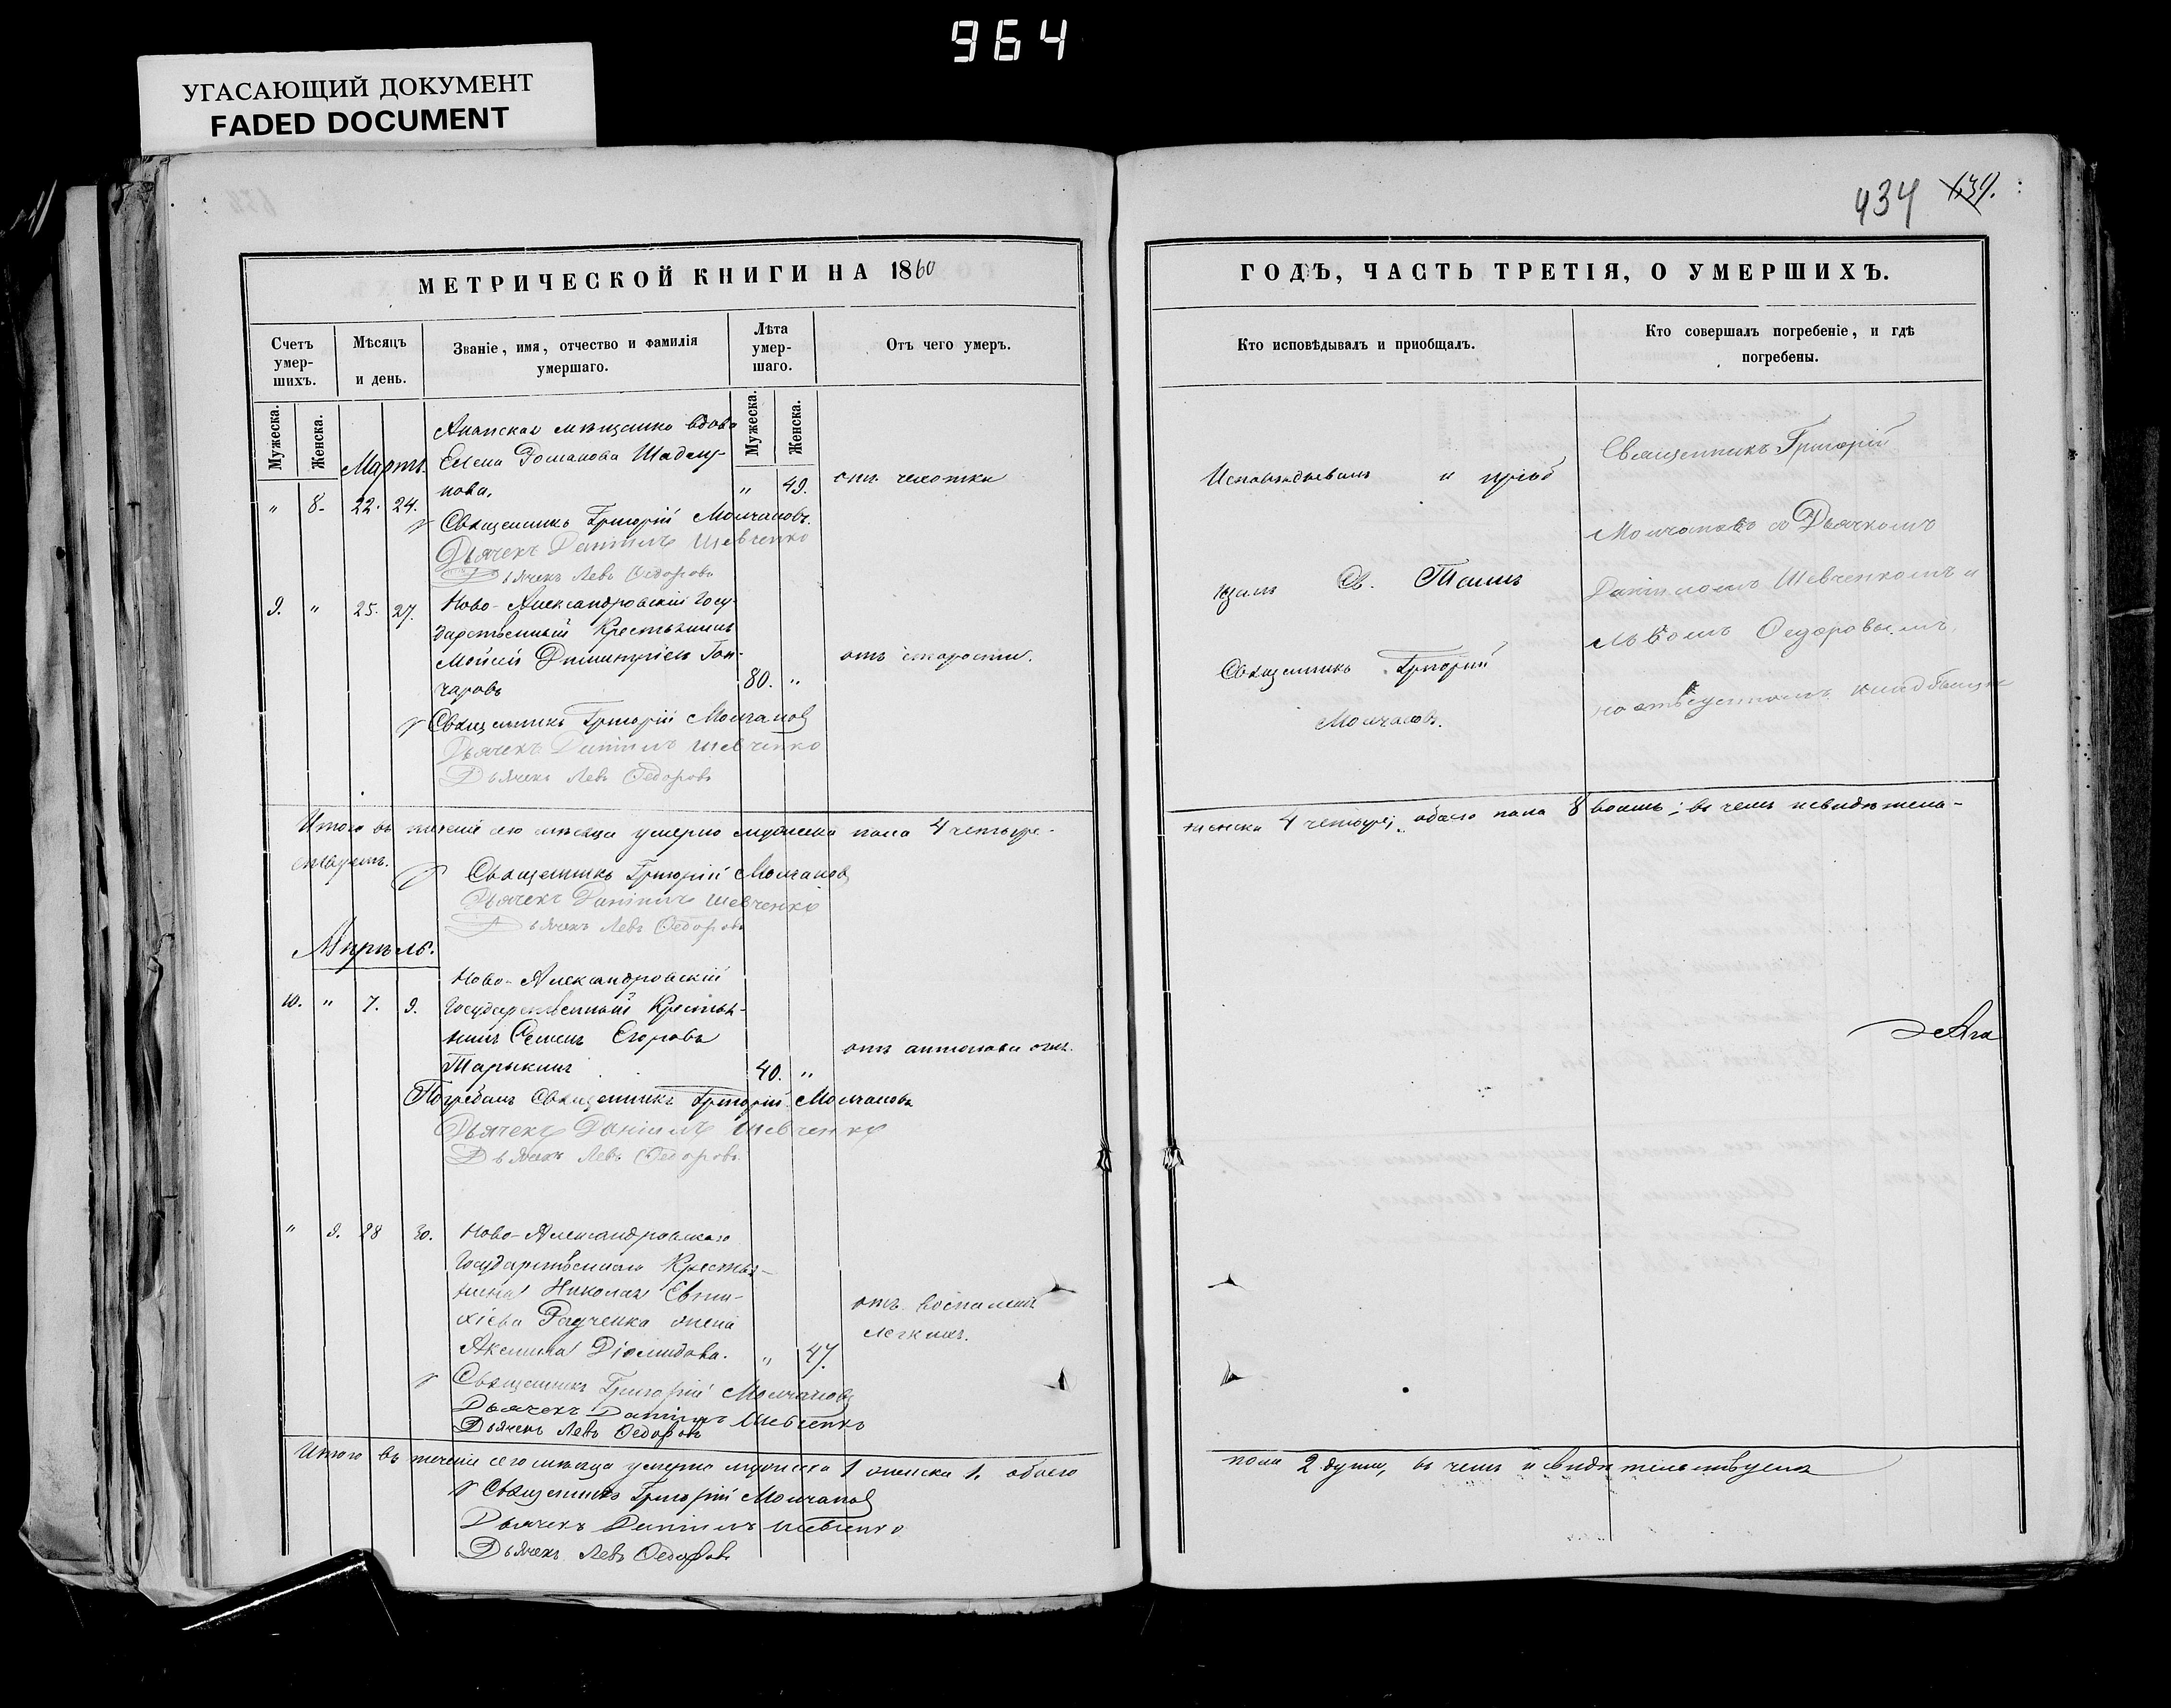 964
УГАСАЮЩИЙ ДОКУМЕНТ
FADED DOCUMENT
434 634.
МЕТРИЧЕСКОЙ КНИГИ НА 1860
Счетъ умер-шихъ.
Мѣсяцъ и день.
Званіе, имя, отчество и фамилія умершаго.
Лѣта умер-шаго.
Отъ чего умеръ.
Мужеска.
Женска.
Мужеска.
Женска.
Мартъ.
Анапская мѣщанка вдова
Елена Романова
нова.
" 8. 22. 24. " 49. отъ чахотки
Священникъ Григорій Молчановъ.
Дьячекъ Даніилъ Шевченко
Дьячекъ Левъ Ѳедоровъ
9. " 25. 27. Ново-Александровскій Госу-
дарственный Крестьянинъ
Моисей Димитріевъ Гон-
чаровъ 80. " отъ старости.
Священникъ Григорій Молчановъ
Дьячекъ Даніилъ Шевченко
Дьячекъ Левъ Ѳедоровъ
Итого въ теченіи сего мѣсяца умерло мужеска пола 4 четыре.
ствуемъ.
Священникъ Григорій Молчановъ
Дьячекъ Даніилъ Шевченко
Дьячекъ Левъ Ѳедоровъ
Апрѣль.
Ново-Александровскій
10. " 7. 9. Государственный Крестья-
нинъ Семенъ Егоровъ
40. " отъ антонова огня.
Погребалъ Священникъ Григорій Молчановъ
Дьячекъ Даніилъ Шевченко
Дьячекъ Левъ Ѳедоровъ
" 9. 28 30. Ново-Александровскаго
Государственнаго Крестья-
нина Николая Евти-
хіева Радченка жена
Акилина Діомидова. " 47. отъ воспаленія
легкихъ.
Священникъ Григорій Молчановъ
Дьячекъ Даніилъ Шевченко
Дьячекъ Левъ Ѳедоровъ
Итого въ теченіи сего мѣсяца умерло мужеска 1 женска 1. обоего
Священникъ Григорій Молчановъ
Дьячекъ Даніилъ Шевченко
Дьячекъ Левъ Ѳедоровъ
ГОДЪ, ЧАСТЬ ТРЕТІЯ, О УМЕРШИХЪ.
Кто исповѣдывалъ и приобщалъ.
Кто совершалъ погребеніе, и гдѣ
погребены.
Исповѣдывалъ и пріоб
щалъ Св. Таинъ
Священникъ Григорій
Молчановъ.
Священникъ Григорій
Молчановъ съ Дьячкомъ
Даніиломъ Шевченкомъ и
Львомъ Ѳедоровымъ
кладбищѣ
женска 4 четыре; обоего пола 8 восемь; въ чемъ и свидѣтель-
пола 2 души, въ чемъ и свидѣтельствуемъ